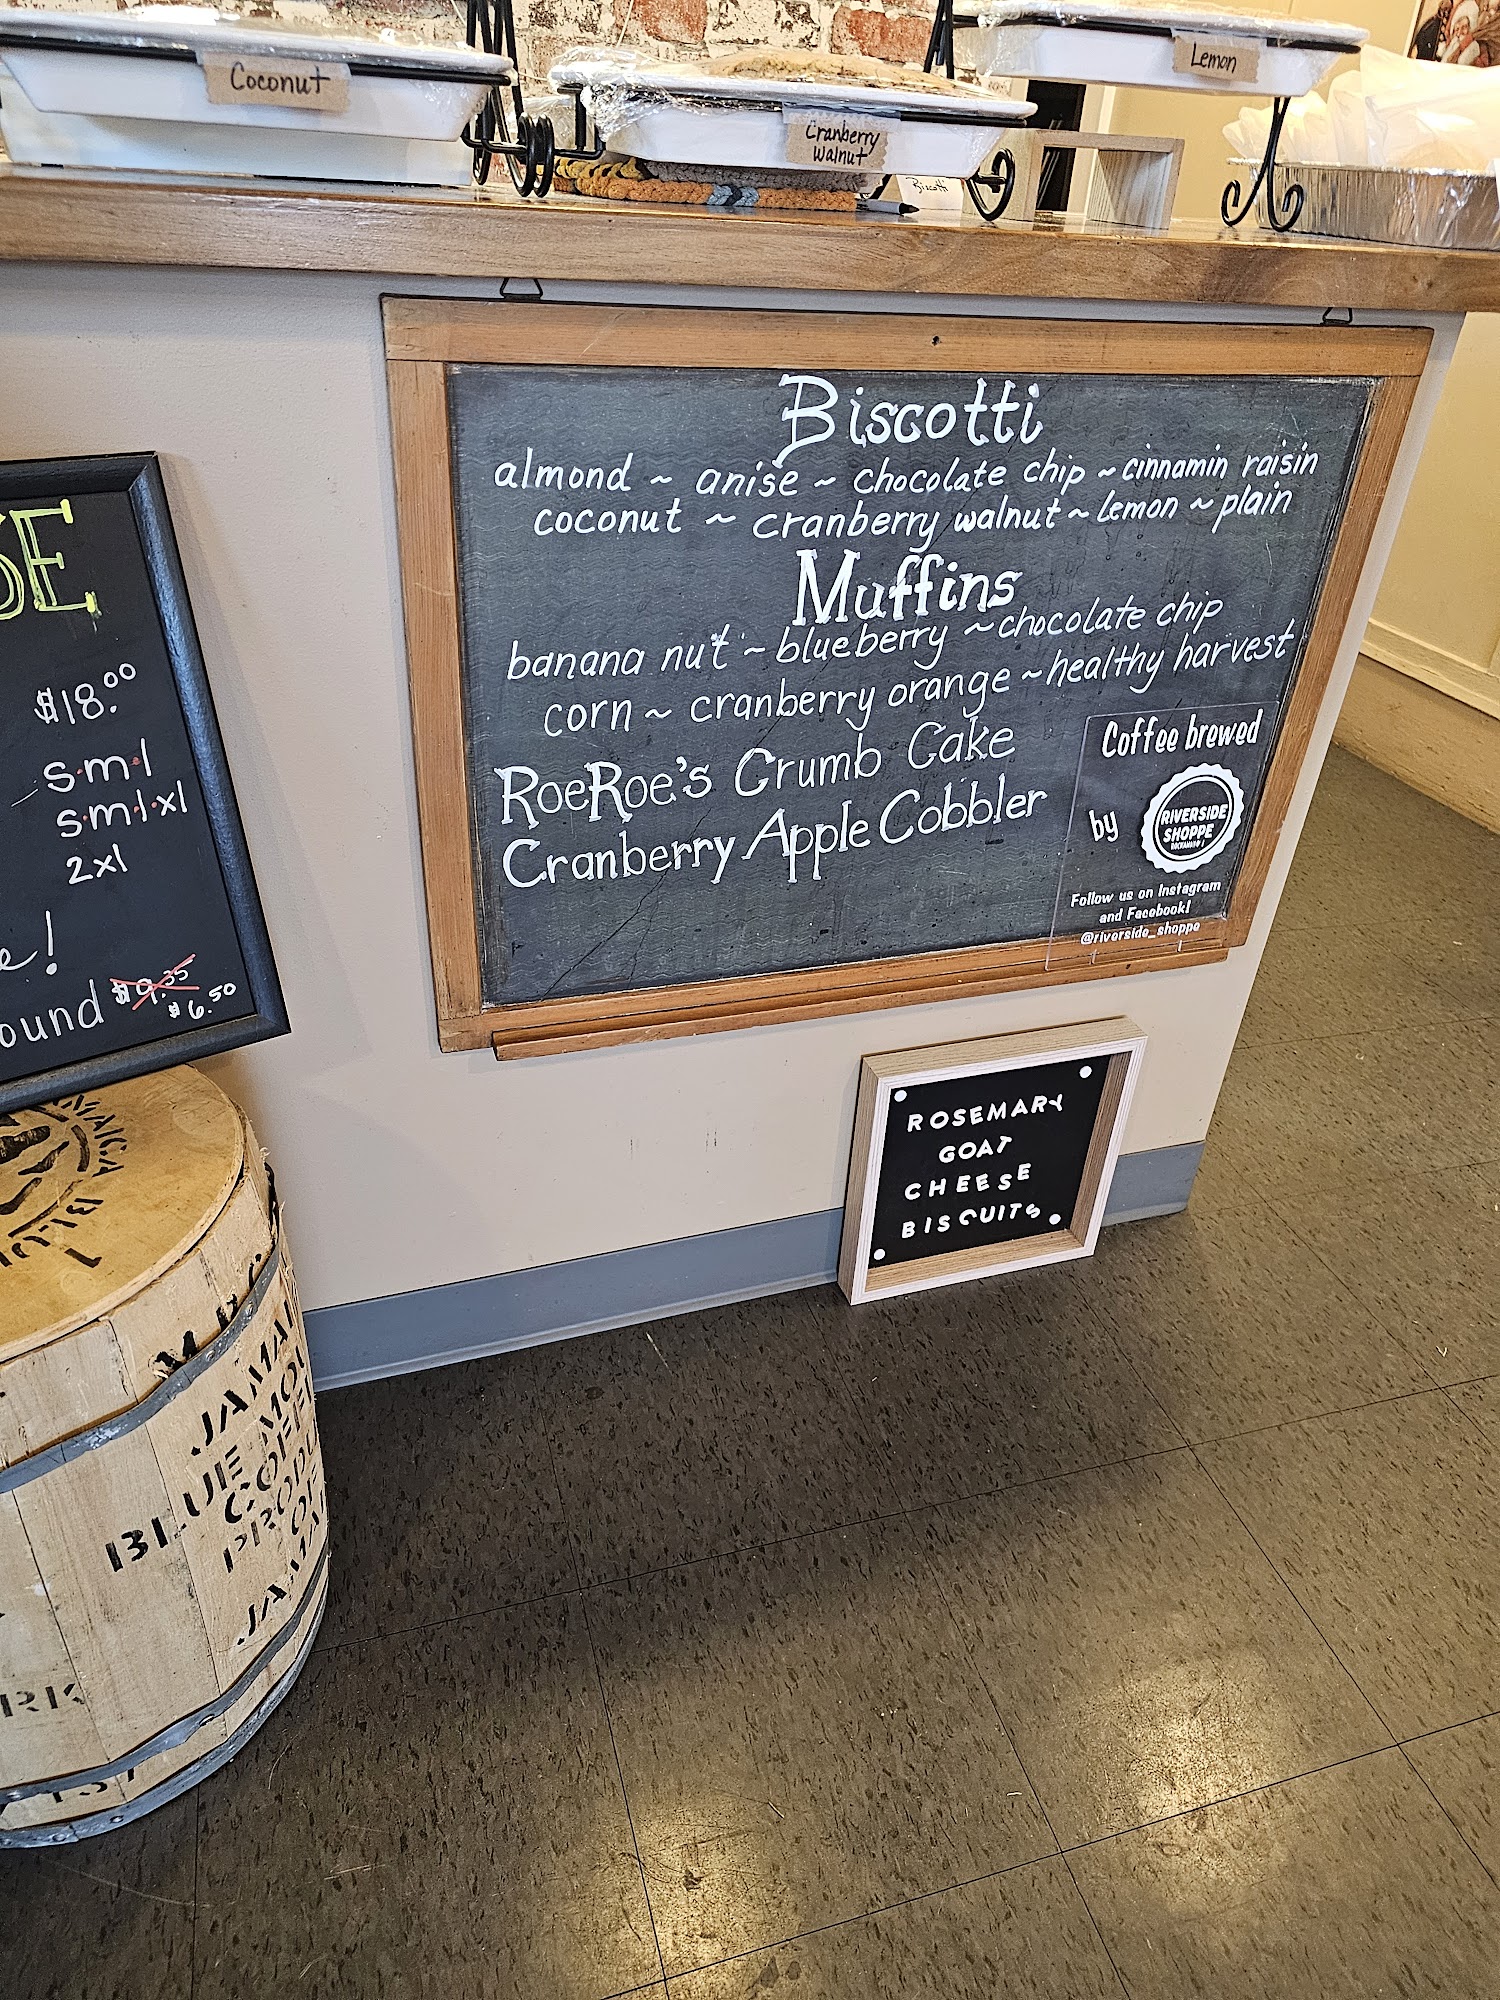 Coconut
Cranberry
Walnut
Lemon
Biscotti
Biscotti
almond ~ anise ~ chocolate chip ~ cinnamin raisin
coconut ~ cranberry walnut ~ lemon ~ plain
Muffins
banana nut ~ blueberry ~ chocolate chip
corn ~ cranberry orange ~ healthy harvest
RoeRoe's Crumb Cake
Cranberry Apple Cobbler
Coffee brewed
by
RIVERSIDE
SHOPPE
Follow us on Instagram
and Facebook!
@riverside_shoppe
$18.00
s·m·l
s·m·l·xl
2xl
$9.35
$6.50
ROSEMARY
GOAT
CHEESE
BISCUITS